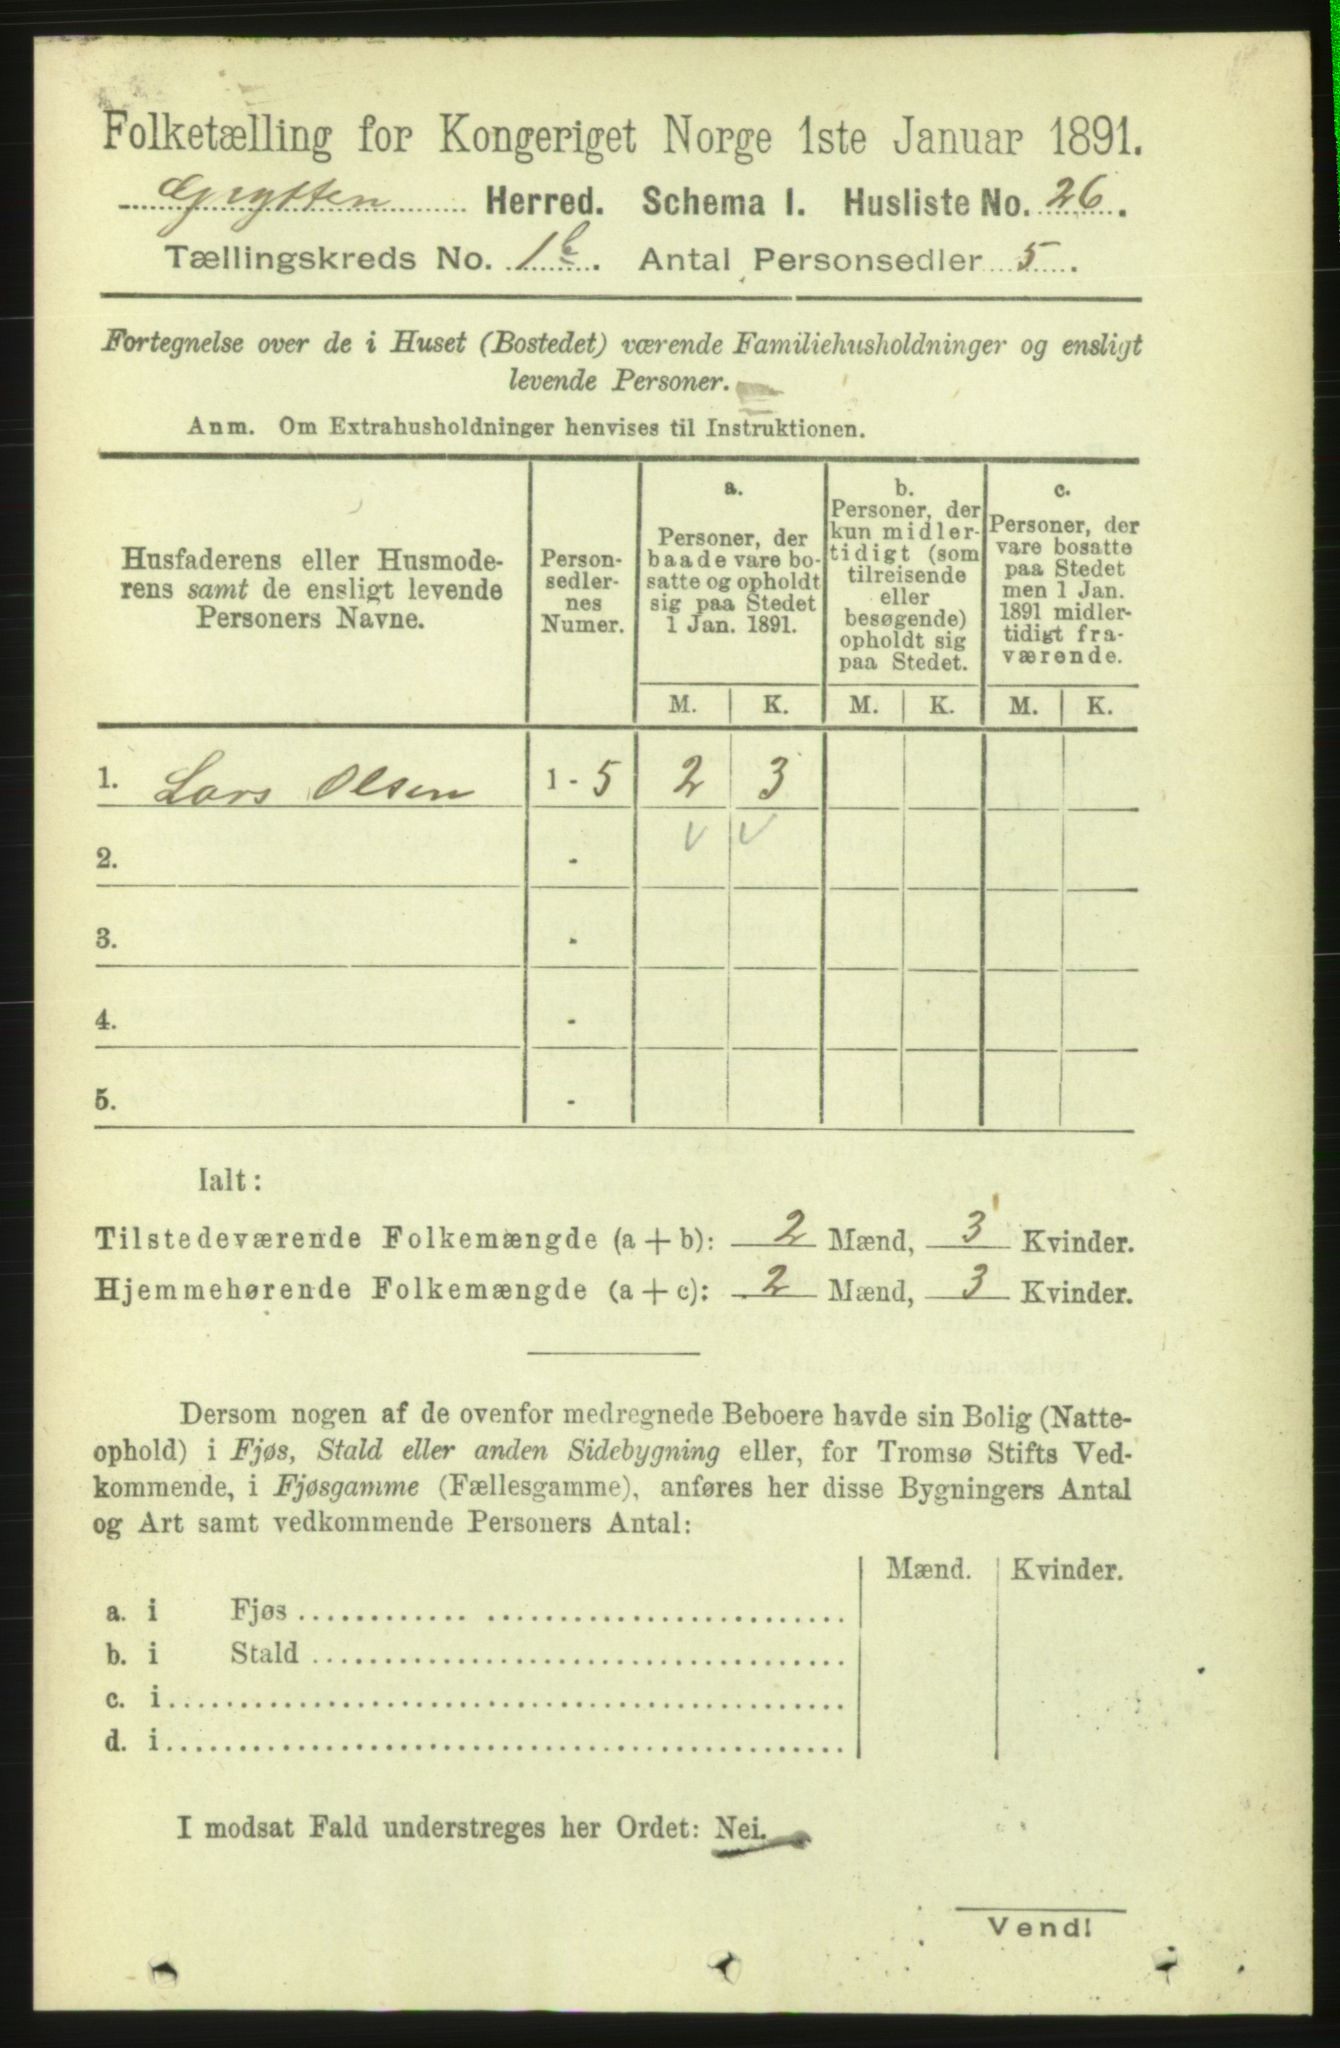 Folketælling for Kongeriget Norge 1ste Januar 1891.
Grytten Herred. Schema I. Husliste No. 26.
Tællingskreds No. 1b. Antal Personsedler 5.
Fortegnelse over de i Huset (Bostedet) værende Familiehusholdninger og ensligt
levende Personer.
Anm. Om Extrahusholdninger henvises til Instruktionen.
Husfaderens eller Husmode-
rens samt de ensligt levende
Personers Navne.
Person-
sedler-
nes
Numer.
a.
Personer, der
baade vare bo-
satte og opholdt
sig paa Stedet
1 Jan. 1891.
b.
Personer, der
kun midler-
tidigt (som
tilreisende
eller
besøgende)
opholdt sig
paa Stedet.
c.
Personer, der
vare bosatte
paa Stedet
men 1 Jan.
1891 midler-
tidigt fra-
værende.
M. K. M. K. M. K.
1. Lars Olsen 1 - 5 2 3
2. -
3. -
4. -
5. -
Ialt:
Tilstedeværende Folkemængde (a + b): 2 Mænd, 3 Kvinder.
Hjemmehørende Folkemængde (a + c): 2 Mænd, 3 Kvinder.
Dersom nogen af de ovenfor medregnede Beboere havde sin Bolig (Natte-
ophold) i Fjøs, Stald eller anden Sidebygning eller, for Tromsø Stifts Ved-
kommende, i Fjøsgamme (Fællesgamme), anføres her disse Bygningers Antal
og Art samt vedkommende Personers Antal:
Mænd. Kvinder.
a. i Fjøs
b. i Stald
c. i
d. i
I modsat Fald understreges her Ordet: Nei.
Vend!